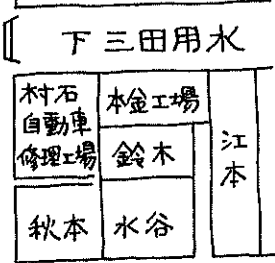 下三田用水
村石
自動車
修理工場
本金工場
鈴木
江本
秋本
水谷